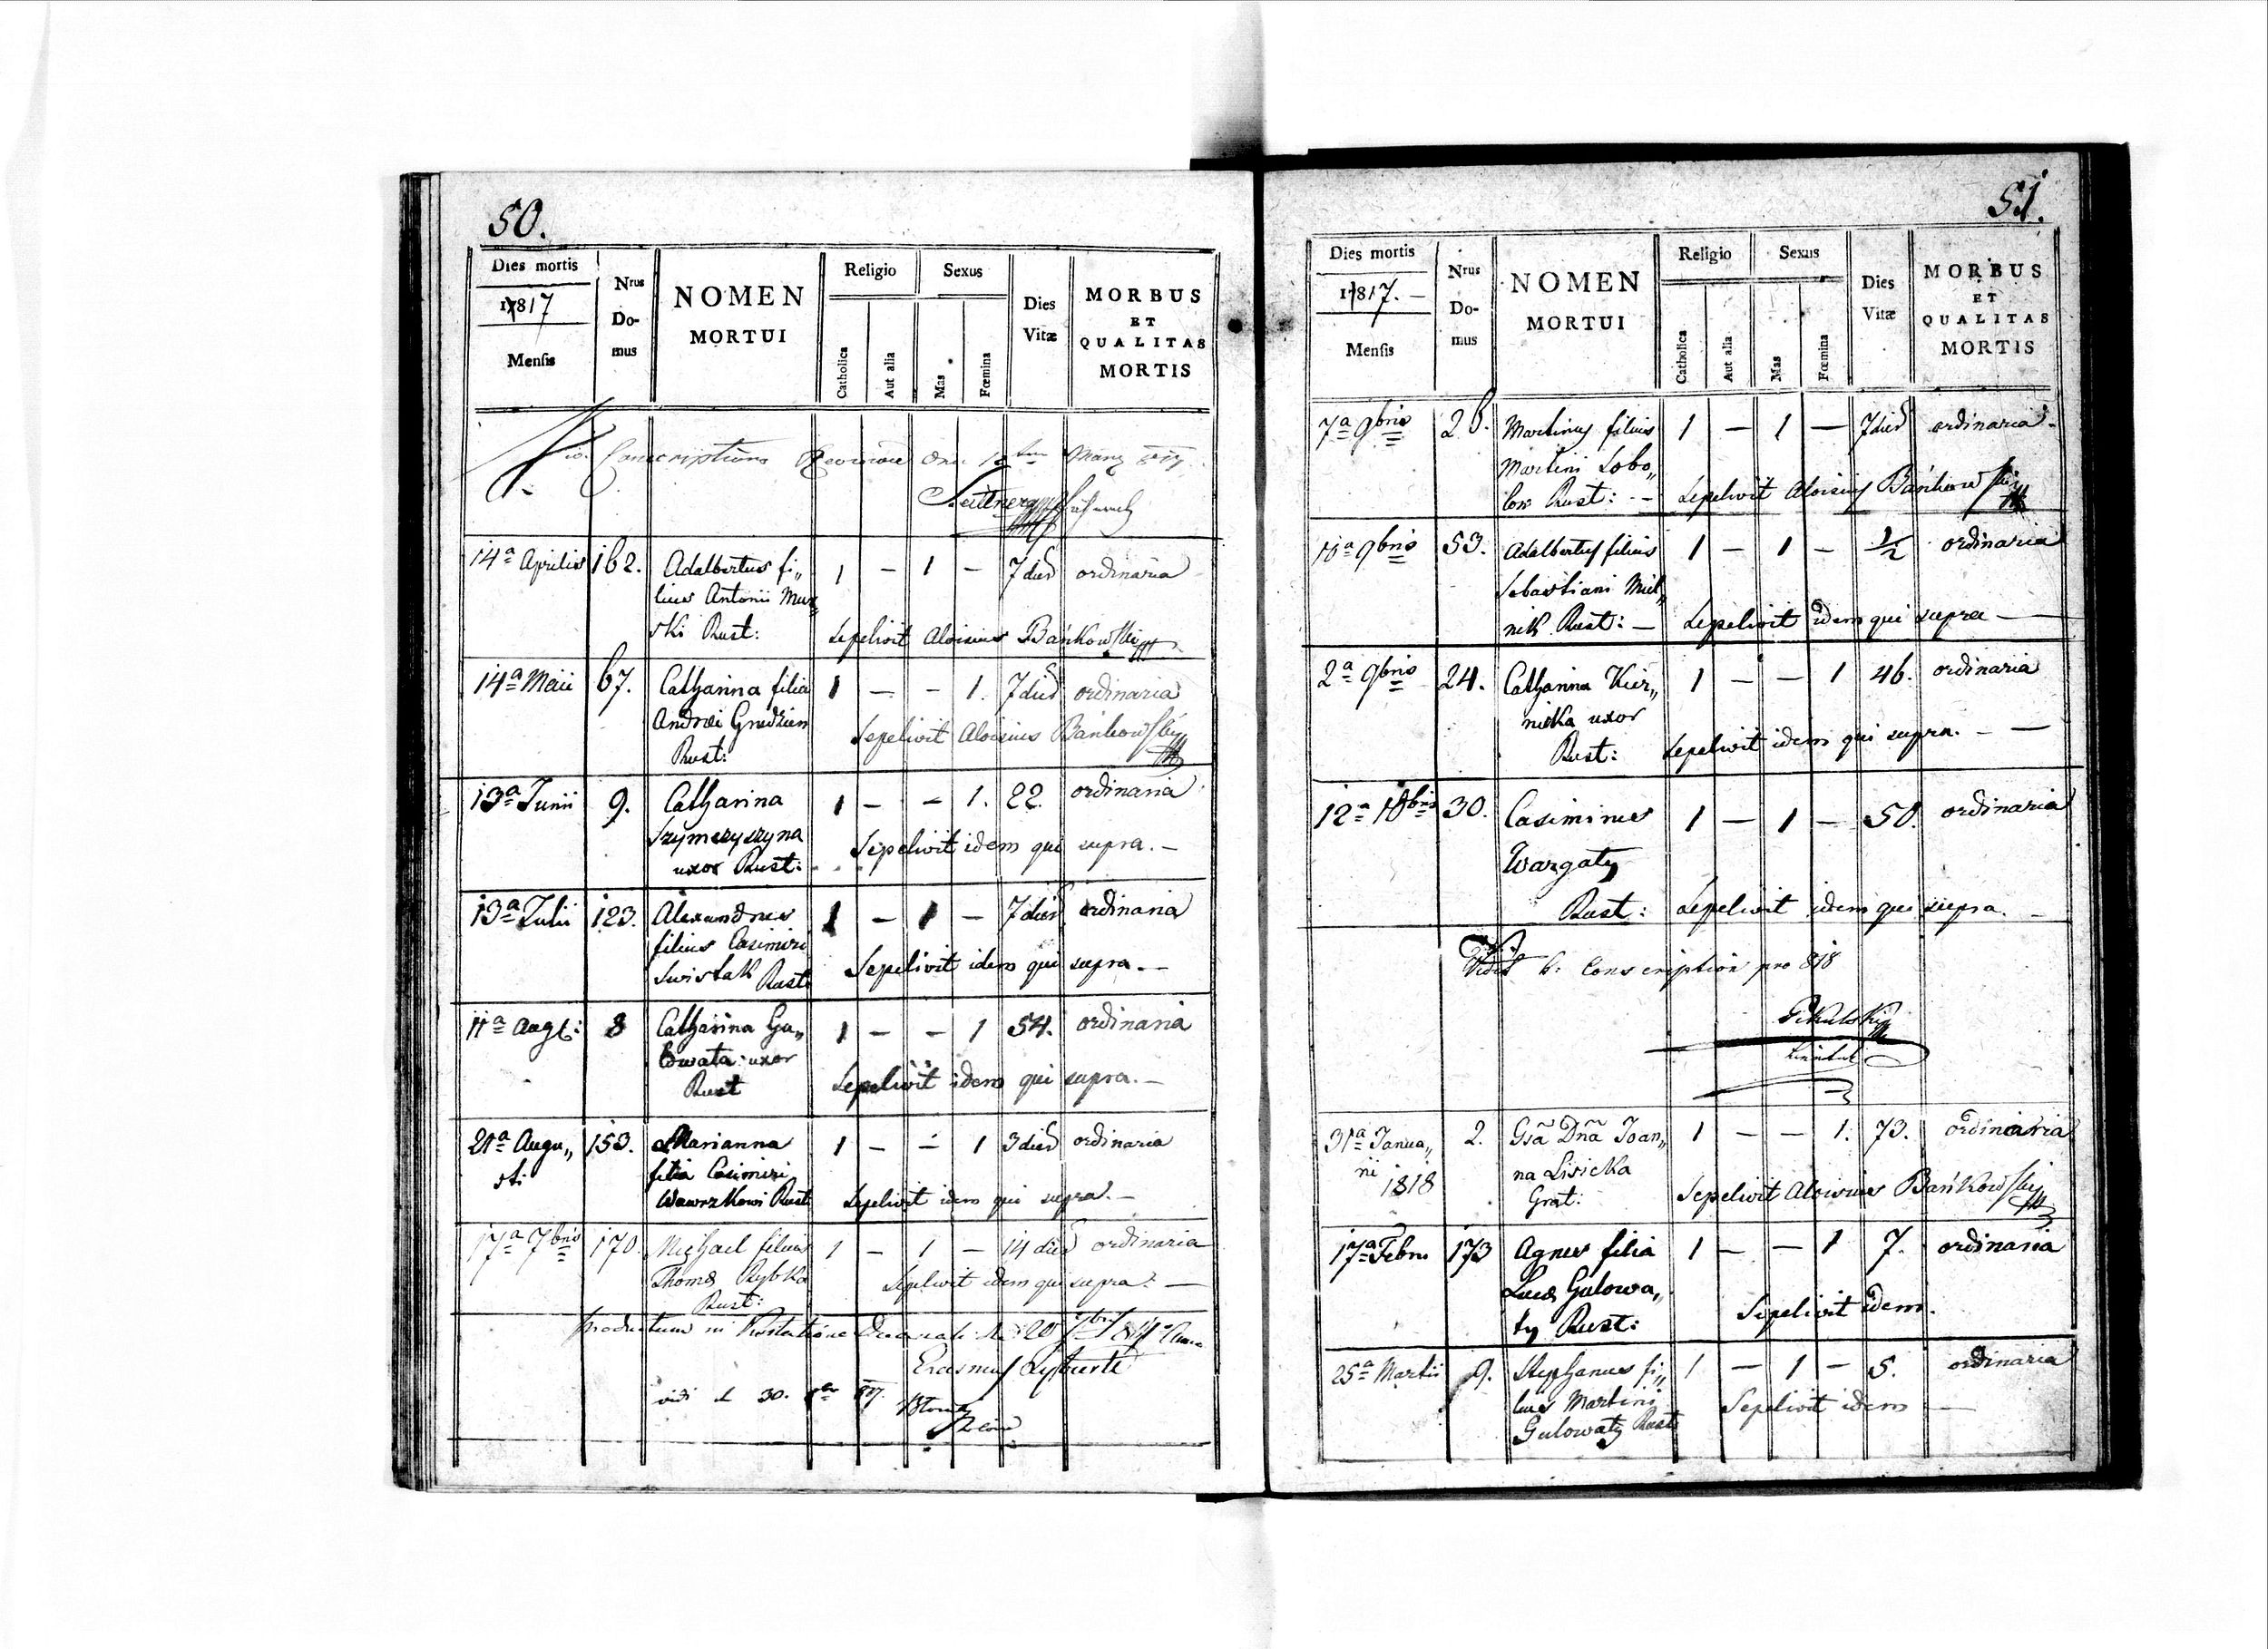 50.
Dies mortis
1817
Mensis
Nrus
Do-
mus
NOMEN
MORTUI
Religio
Catholica
Aut alia
Sexus
Mas
Fœmina
Dies
Vitæ
MORBUS
ET
QUALITAS
MORTIS
Conscriptions Revision den März
14ª Aprilis 162. Adalbertus fi„ 1 – 1 – 7 dies ordinaria
lius Antonii
ski Rust: Sepelivit Aloisius Bańkowski
14ª Maii 67. Catharina filia 1 – – 1. 7 dies ordinaria
Andreæ Grudzien Sepelivit Aloisius Bańkowski
Rust:
13ª Junii 9. Catharina 1 – – 1. 22. ordinaria
Szymczyszyna Sepelivit idem qui supra. –
uxor Rust:
13ª Julii 123. Alexandrus 1 – 1 – 7 dies ordinaria
filius Casimiri
Swistak Rust: Sepelivit idem qui supra. –
11ª Augt: 8 Catharina Gu„ 1 – – 1 54. ordinaria
lowata uxor
Rust Sepelivit idem qui supra. –
21ª Augu„ 153. Marianna 1 – – 1 3 dies ordinaria
sti filia Casimiri
Wawrzkowi Rust: Sepelivit idem qui supra. –
17ª 7bris 170. Michael filius 1 – 1 – 14 dies ordinaria
Thomæ Rybka Sepelivit idem qui supra. –
Rust:
Productum in Decanali
Erasmus
vidi 30.
51.
Dies mortis
1817. –
Mensis
Nrus
Do-
mus
NOMEN
MORTUI
Religio
Catholica
Aut alia
Sexus
Mas
Fœmina
Dies
Vitæ
MORBUS
ET
QUALITAS
MORTIS
7ª 9bris 26. Martinus filius 1 – 1 – 7 dies ordinaria –
Martini Lobo„
Rust: – Sepelivit Aloisius Bańkowski
10ª 9bris 53. Adalbertus filius 1 – 1 – 1/2 ordinaria
Sebastiani Miel„
nik Rust: – Sepelivit idem qui supra –
2ª 9bris 24. Catharina Kier„ 1 – – 1 46. ordinaria
nicka uxor
Rust: Sepelivit idem qui supra. – –
12ª 10bris 30. Casimirus 1 – 1 – 50. ordinaria
Wargaty
Rust: Sepelivit idem qui supra. –
Vidit Conscription pro 818
31ª Janua„ 2. Gsa Dna Joan„ 1 – – 1. 73. ordinaria
rii na Lisicka
1818 Grat: Sepelivit Aloisius Bańkowski
17ª Febru 173 Agnes filia 1 – – 1 7. ordinaria
Lucæ Gulowa„
ty Rust: Sepelivit idem.
25ª Martii 9. Stephanus fi„ 1 – 1 – 5. ordinaria
lius Martini Sepelivit idem –
Gulowaty Rust: